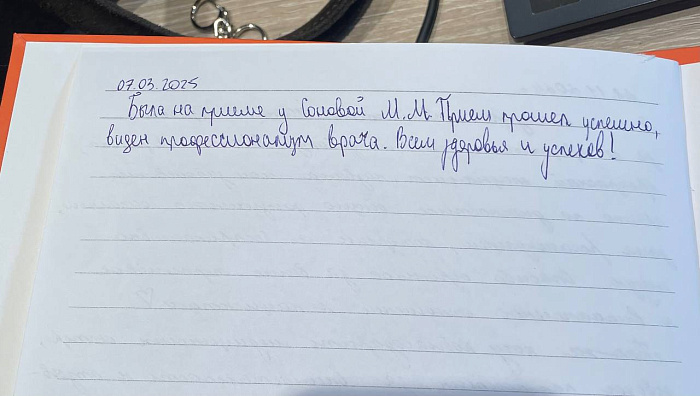 07.03.2025
Была на приеме у Соновой М.М. Прием прошел успешно,
виден профессионализм врача. Всем здоровья и успехов!